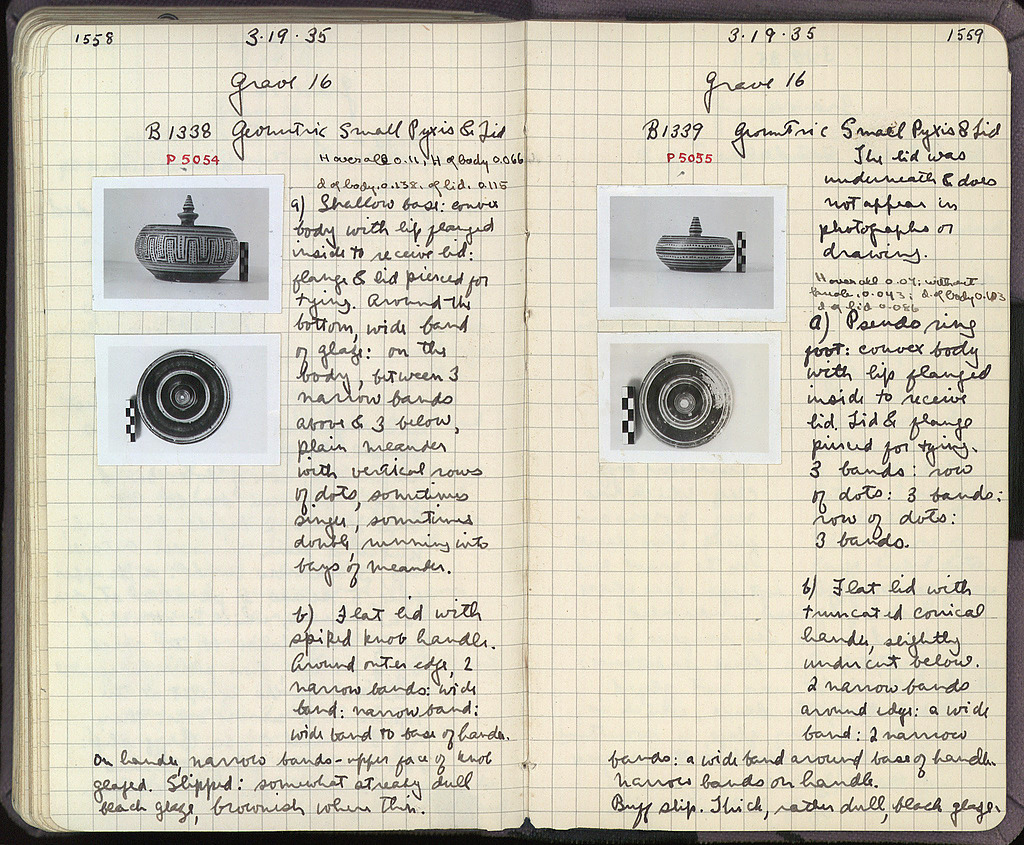 1558
3·19·35
Grave 16
B 1338 Geometric Small Pyxis & Lid
P 5054
H overall 0.11; H of body 0.066
d of body, 0.138, of lid, 0.115
a) Shallow base: convex
body with lip flanged
inside to receive lid:
flange & lid pierced for
tying. Around the
bottom, wide band
of glaze: on the
body, between 3
narrow bands
above & 3 below,
plain meander
with vertical rows
of dots, sometimes
single, sometimes
double, running into
bays of meander.
b) Flat lid with
spiked knob handle.
Around outer edge, 2
narrow bands: wide
band: narrow band:
wide band to base of handle.
On handle, narrow bands - upper face of knob
glazed. Slipped: somewhat streaky dull
black glaze, brownish where thin.
3·19·35
1559
Grave 16
B 1339 Geometric Small Pyxis & Lid
P 5055
The lid was
underneath & does
not appear in
photographs or
drawing.
H overall 0.07; without
handle, 0.043; d of body
d of lid 0.086
a) Pseudo ring
foot: convex body
with lip flanged
inside to receive
lid. Lid & flange
pierced for tying.
3 bands: row
of dots: 3 bands:
row of dots:
3 bands.
b) Flat lid with
truncated conical
handle, slightly
undercut below.
2 narrow bands
around edge: a wide
band: 2 narrow
bands: a wide band around base of handle.
Narrow bands on handle.
Buff slip. Thick, rather dull, black glaze.